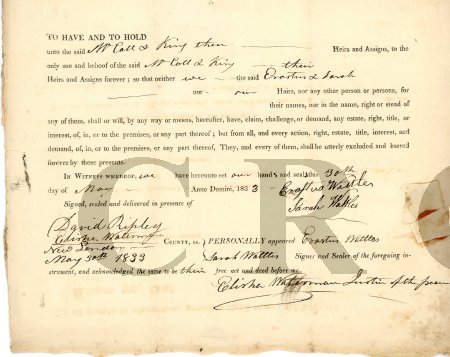 TO HAVE AND TO HOLD
unto the said McCall & King their Heirs and Assigns, to the
only use and behoof of the said McCall & King their
Heirs and Assigns forever; so that neither we the said Erastus & Sarah
nor our Heirs, nor any other person or persons, for
their names, nor in the name, right or stead of
any of them, shall or will, by any way or means, hereafter, have, claim, challenge, or demand, any estate, right, title, or
interest, of, in, or to the premises, or any part thereof; but from all, and every action, right, estate, title, interest, and
demand, of, in, or to the premises, or any part thereof, They, and every of them, shall be utterly excluded and barred
forever by these presents.
IN WITNESS WHEREOF, we have hereunto set our hands and seals this 30th
day of May Anno Domini, 1833 Erastus Wattles
Signed, sealed and delivered in presence of Sarah Wattles
David Ripley
Elisha Waterman
New London COUNTY, ss. PERSONALLY appeared Erastus Wattles
May 30th 1833 Sarah Wattles Signer and Sealer of the foregoing in-
strument, and acknowledged the same to be their free act and deed before me,
Elisha Waterman Justice of the peace
CRC